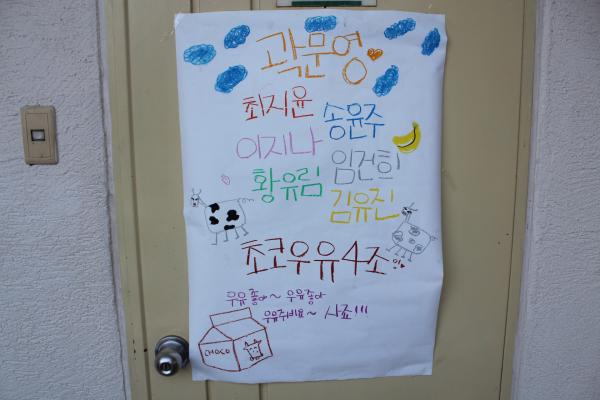 곽문영
최지윤 송윤주
이지나 임건희
황유림 김유진
초코우유4조!
우유좋아~ 우유좋아
우유주세요~ 사죠!!!
CHOCO